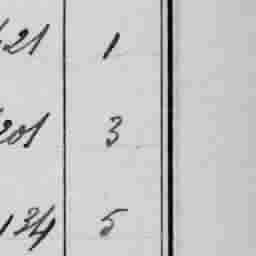 21 1
201 3
134 5